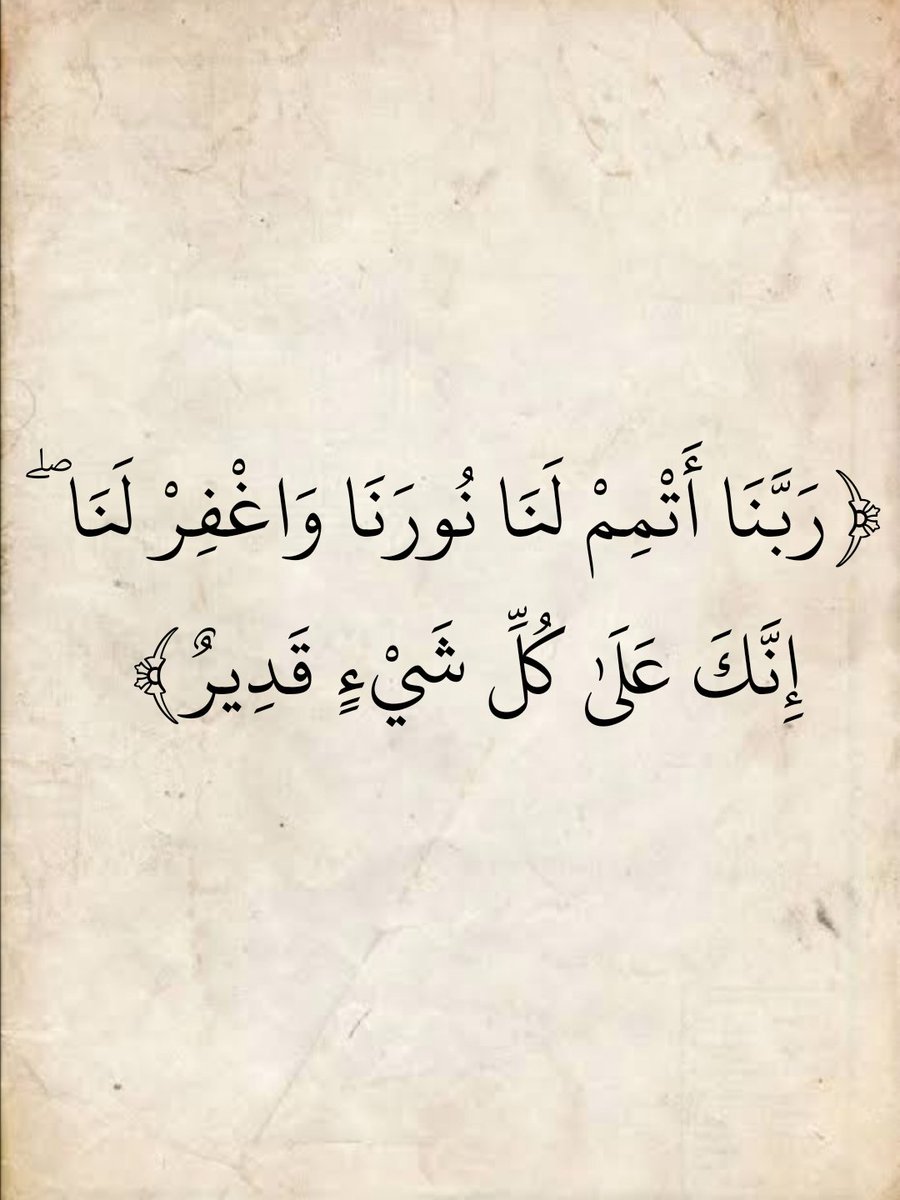 ﴿رَبَّنَا أَتْمِمْ لَنَا نُورَنَا وَاغْفِرْ لَنَا ۖ
إِنَّكَ عَلَىٰ كُلِّ شَيْءٍ قَدِيرٌ﴾